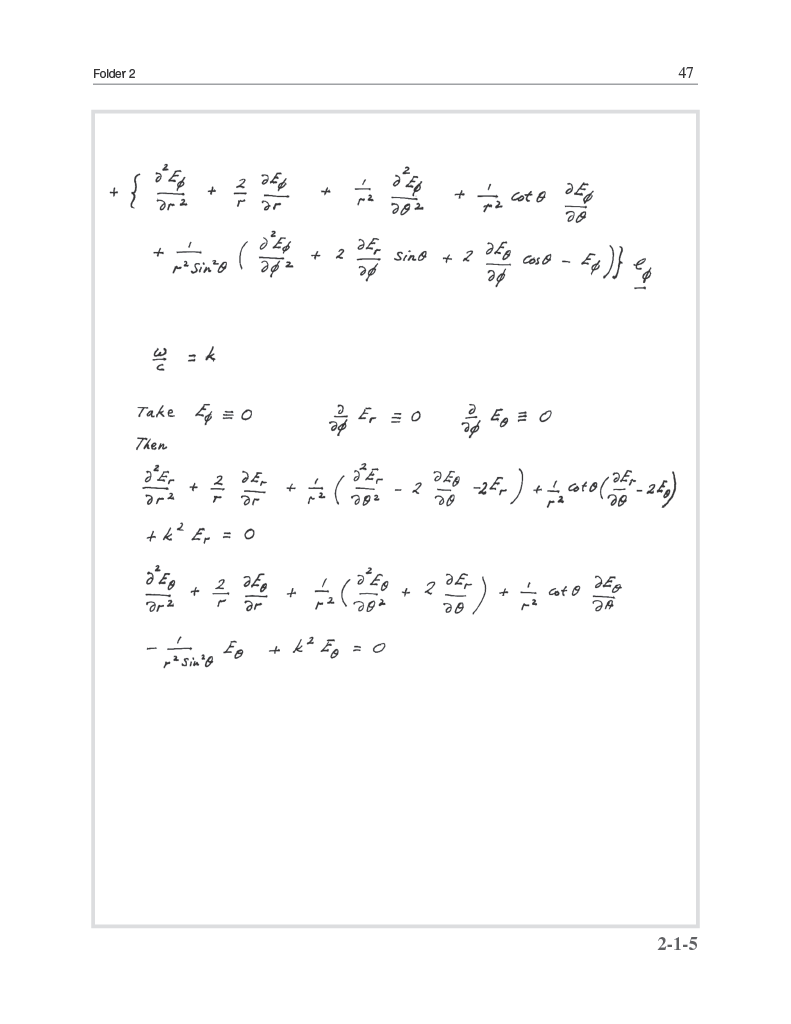 Folder 2 47
+ { ∂²E_ϕ/∂r² + 2/r ∂E_ϕ/∂r + 1/r² ∂²E_ϕ/∂θ² + 1/r² cot θ ∂E_ϕ/∂θ
+ 1/(r² sin²θ) ( ∂²E_ϕ/∂ϕ² + 2 ∂E_r/∂ϕ sinθ + 2 ∂E_θ/∂ϕ cosθ - E_ϕ ) } e_ϕ
ω/c = k
Take E_ϕ ≡ 0 ∂/∂ϕ E_r ≡ 0 ∂/∂ϕ E_θ ≡ 0
Then
∂²E_r/∂r² + 2/r ∂E_r/∂r + 1/r² ( ∂²E_r/∂θ² - 2 ∂E_θ/∂θ - 2E_r ) + 1/r² cot θ ( ∂E_r/∂θ - 2E_θ )
+ k² E_r = 0
∂²E_θ/∂r² + 2/r ∂E_θ/∂r + 1/r² ( ∂²E_θ/∂θ² + 2 ∂E_r/∂θ ) + 1/r² cot θ ∂E_θ/∂θ
- 1/(r² sin²θ) E_θ + k² E_θ = 0
2-1-5